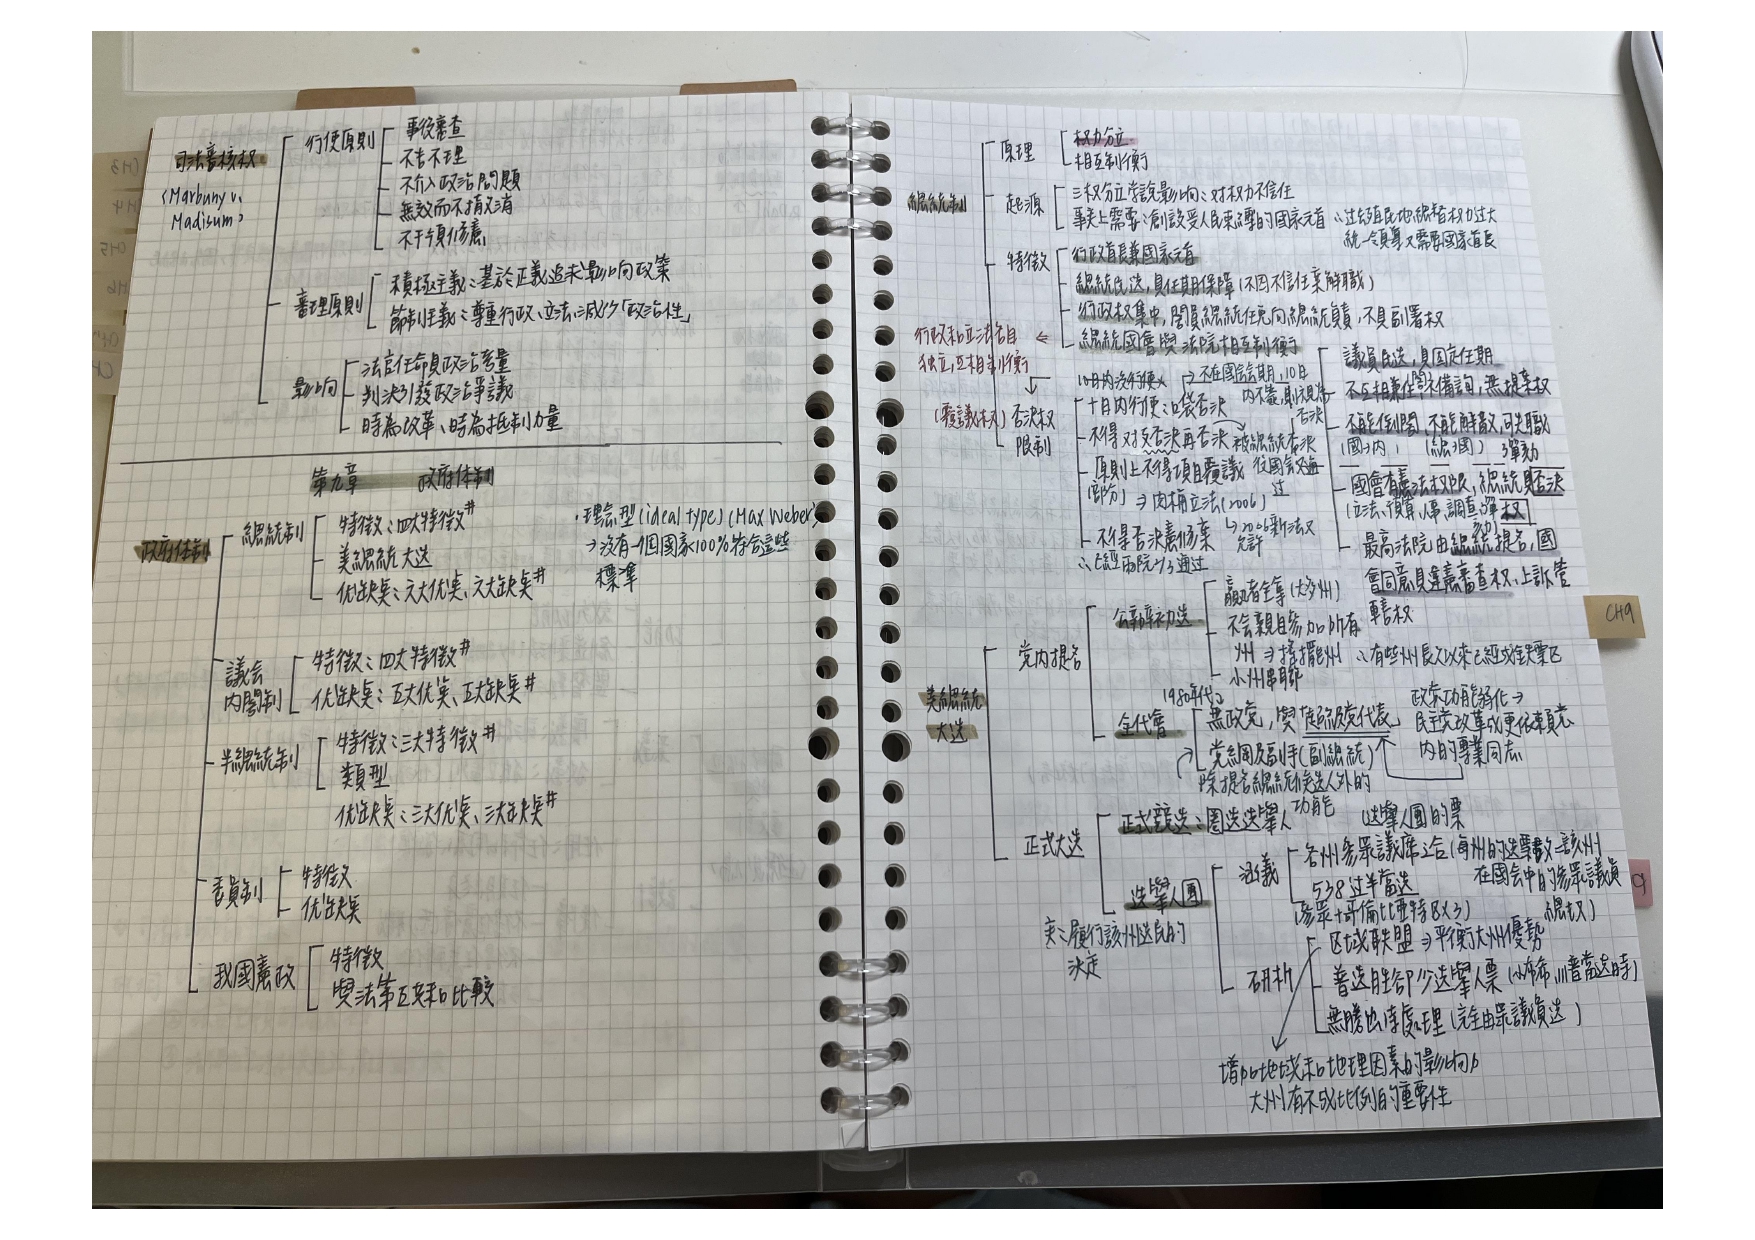 司法審核權
(Marbury v.
Madisum)
行使原則
事後審查
不告不理
不介入政治問題
無效而不撤消
不干預修憲
審理原則
積極主義：基於正義追求影响政策
節制主義：尊重行政、立法，減少「政治性」
影响
法官任命員政治考量
判決引發政治爭議
時為改革、時為抵制力量
第九章 政府体制
政府体制
總統制
特徵：四大特徵#
美總統大选
优缺奌：六大优奌、六大缺奌#
·理念型(ideal type)(Max Weber)
→沒有一個國家100%符合這些
標準
議会
內閣制
特徵：四大特徵#
优缺奌：五大优奌、五大缺奌#
半總統制
特徵：三大特徵#
類型
优缺奌：三大优奌、三大缺奌#
委員制
特徵
优缺奌
我國憲政
特徵
與法第五共和比較
總統制
原理
权力分立
相互制衡
起源
三权分立学說影响：对权力不信任
事实上需要：創設受人民束縛的國家元首 ∵过去殖民地總督权力过大
統一領導又需要國家首長
特徵
行政首長兼國家元首
總統民选，具任期保障(不因不信任案解職)
行政权集中，閣員總統任免向總統負責，不具副署权
總統國會與法院相互制衡
行政和立法各自
独立，互相制衡
議員民选，具固定任期
不互相兼任，不備詢，無提案权
不能倒閣，不能解散，可失職
(國→內) (總→國) 彈劾
國會有憲法权限，總統具否決
(立法、預算、人事、調查、彈劾) 权
最高法院由總統提名，國
會同意具違憲審查权、上訴管
轄权
(覆議权) 否決权
限制
10日內沒行使× → 不在國會会期，10日
內不簽，則視為
否決
十日內行使：口袋否決
不得对支否決再否決 被總統否決
後國會又通
过
原則上不得項目覆議
(部分) ⇒內補立法(2006)
↳2006新法又
允許
不得否決憲修案
∵已經兩院2/3通过
美總統
大选
党內提名
公辦初选
贏者全拿(大多州)
不会親自參加所有
州 ⇒搖擺州 ∵有些州長久以來已經成鉄票区
小州串聯
全代會
1980年代：
無政党，與超級党代表
党綱及副手(副總統)
除提名總統候选人外的
功能
政党功能弱化→
民主党改革成更依賴党
內的專業同志
正式大选
正式競选：圈选选舉人
选舉人團
实：履行該州选民的
決定
涵義
选舉人團的票
各州參眾議席之合(每州的选票數=該州
在國会中的參眾議員
總数)
538过半當选
(參眾+哥倫比亞特区×3)
研析
区域联盟 ⇒平衡大州優勢
普选胜卻少选舉人票(小布希、川普當选時)
無勝出待處理(完全由眾議員选)
增加地域和地理因素的影响力
大州有不成比例的重要性
CH9